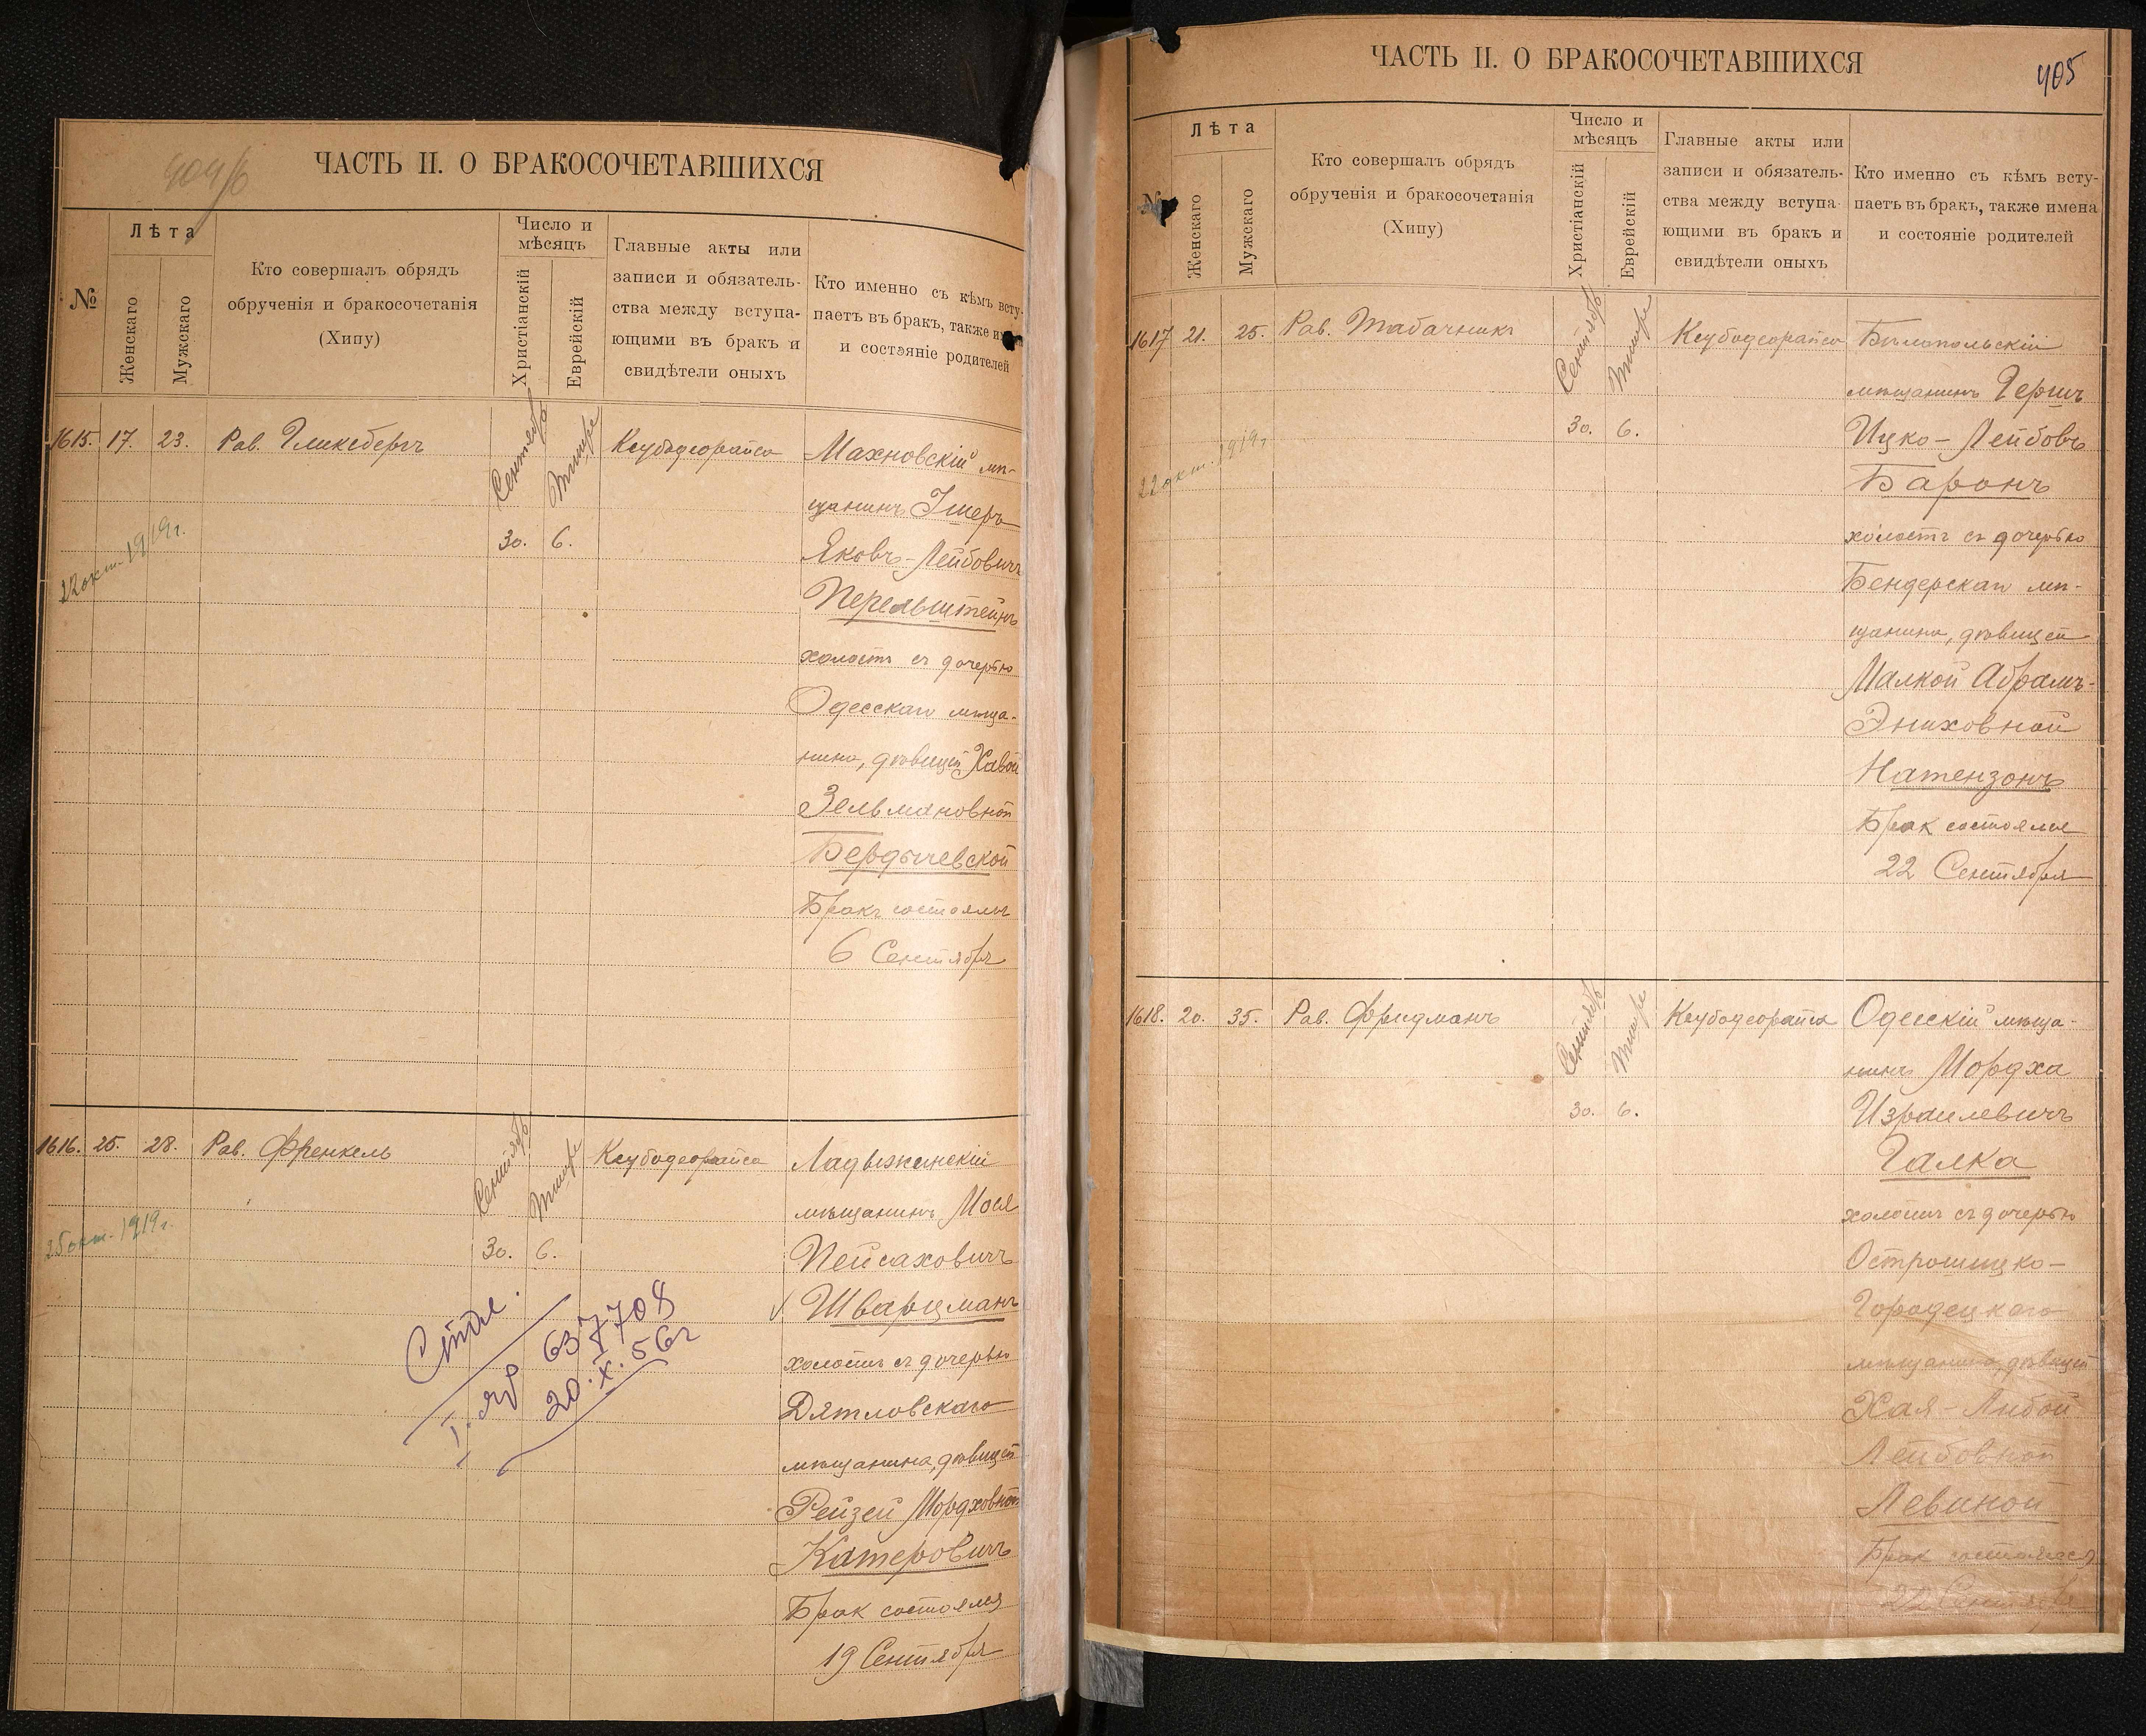 404/б
ЧАСТЬ II. О БРАКОСОЧЕТАВШИХСЯ
№
Лѣта
Женскаго
Мужскаго
Кто совершалъ обрядъ
обрученія и бракосочетанія
(Хипу)
Число и
мѣсяцъ
Христіанскій
Еврейскій
Главные акты или
записи и обязатель-
ства между вступа-
ющими въ бракъ и
свидѣтели оныхъ
Кто именно съ кѣмъ всту-
паетъ въ бракъ, также
и состояніе родителей
1615. 17. 23. Рав. Гликсбергъ
Сентябрь
Тишре
30. 6.
Ксубодеорайса
22 окт. 1919 г.
Махновскій мѣ-
щанинъ Ушеръ
Яковъ-Лейбовичъ
Перельштейнъ
холостъ съ дочерью
Одесскаго мѣща-
нина, дѣвицей Хавой
Зельмановной
Бердичевской
Бракъ состоялся
6 Сентября
1616. 25. 28. Рав. Френкель
Сентябрь
Тишре
30. 6.
Ксубодеорайса
25 окт. 1919 г.
Ладыжинскій
мѣщанинъ Мося
Пейсаховичъ
Шварцманъ
холостъ съ дочерью
Дятловскаго
мѣщанина, дѣвицей
Рейзей Мордховной
Катеровичъ
Брак состоялся
19 Сентября
637708
20.X.56г
ЧАСТЬ II. О БРАКОСОЧЕТАВШИХСЯ
405
№
Лѣта
Женскаго
Мужскаго
Кто совершалъ обрядъ
обрученія и бракосочетанія
(Хипу)
Число и
мѣсяцъ
Христіанскій
Еврейскій
Главные акты или
записи и обязатель-
ства между вступа-
ющими въ бракъ и
свидѣтели оныхъ
Кто именно съ кѣмъ всту-
паетъ въ бракъ, также имена
и состояніе родителей
1617 21. 25. Рав. Табачникъ
Сентябрь
Тишре
30. 6.
Ксубодеорайса
22 окт. 1919 г.
Бѣлопольскій
мѣщанинъ Гершъ
Ицко-Лейбовъ
Баронъ
холостъ съ дочерью
Бендерскаго мѣ-
щанина, дѣвицей
Малкой Абрамъ-
Эниховной
Натензонъ
Брак состоялся
22 Сентября
1618. 20. 35. Рав. Фридманъ
Сентябрь
Тишре
30. 6.
Ксубодеорайса
Одесскій мѣща-
нинъ Мордха
Израилевичъ
Галка
холостъ съ дочерью
Острошицко-
Городецкаго
мѣщанина, дѣвицей
Хая-Либой
Лейбовной
Левиной
Брак состоялся
22 Сентября